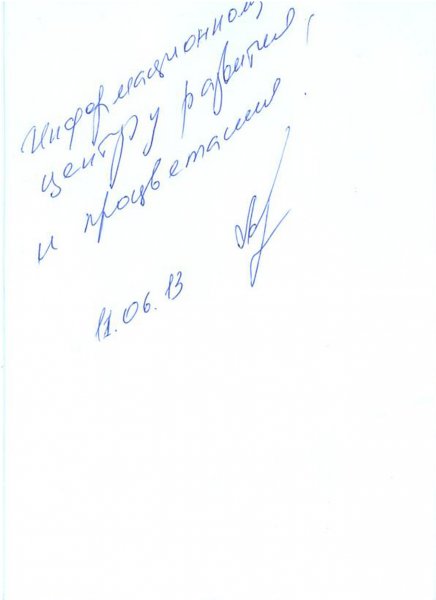 Информационному
центру развития,
и процветания.
11.06.13